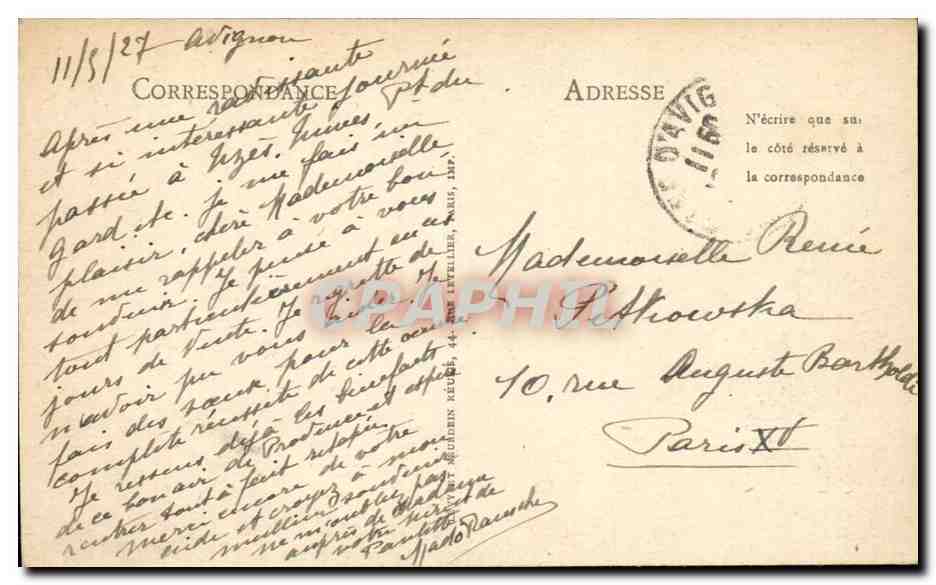 11/5/27 Avignon
CORRESPONDANCE
Après une ravissante
et si intéressante journée
passée à Uzès, Nîmes, Pt du
Gard etc. je me fais un
plaisir, chère Mademoiselle
de me rappeler à votre bon
souvenir. Je pense à vous
tout particulièrement en ces
jours de Vente. Je regrette de
n'avoir pu vous aider. Je
fais des vœux pour la
complète réussite de cette
Je ressens déjà les bienfaits
de ce bon air de Provence et espère
rentrer tout à fait retapée
merci encore de votre
et croyez à mon
meilleur souvenir
ne m'oubliez pas
auprès de Madame
votre
Mado
RÉUNIS, 44, RUE LETELLIER, PARIS, IMP.
ADRESSE
N'écrire que sur
le côté réservé à
la correspondance
D'AVIG
Mademoiselle Renée
Petkowska
10, rue Auguste Bartholdi
Paris XV
CPARAMA